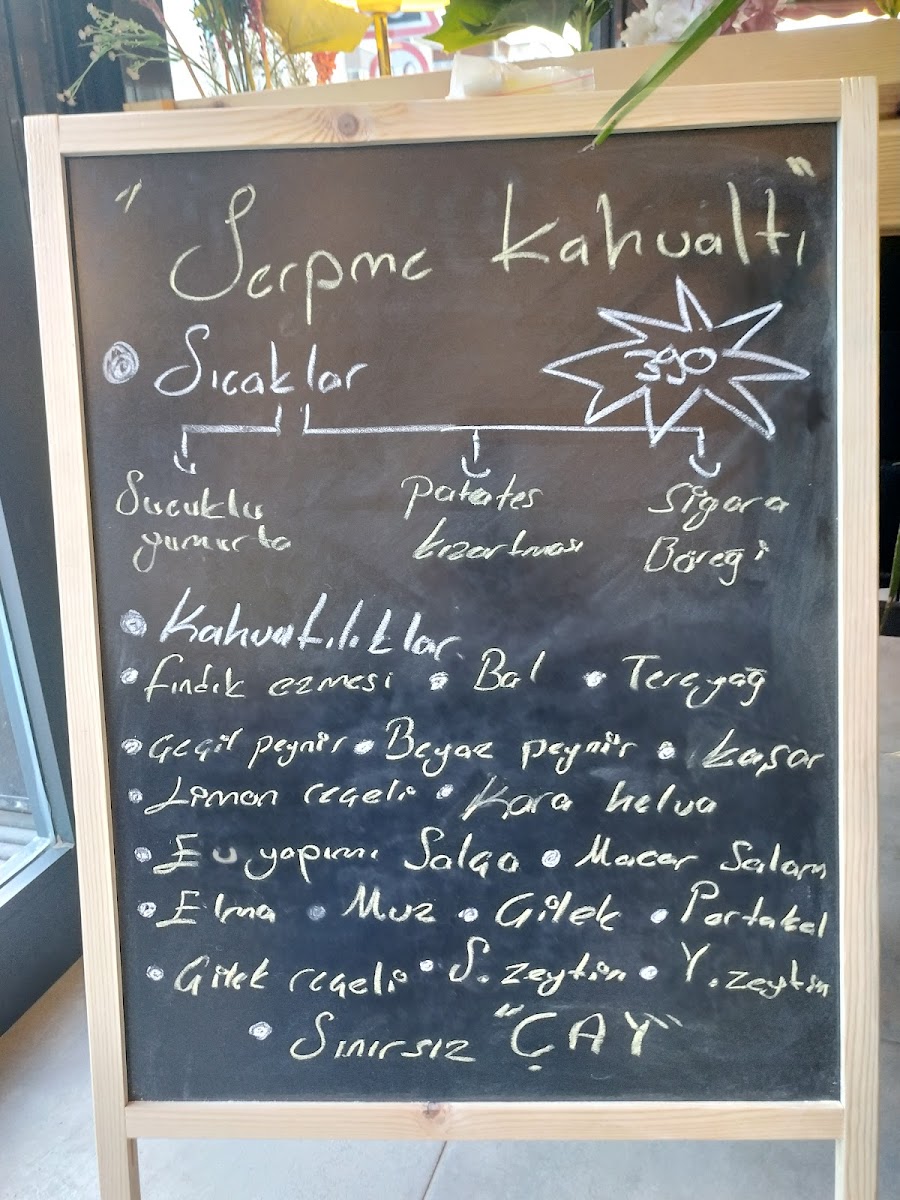 "Serpme Kahvaltı"
• Sıcaklar
390
Sucuklu yumurta
Patates kızartması
Sigara Böreği
• Kahvatılıklar
• Fındık ezmesi • Bal • Tereyağ
• Çeçil peynir • Beyaz peynir • Kaşar
• Limon reçeli • Kara helva
• Ev yapımı Salça • Macar Salam
• Elma • Muz • Çilek • Portakal
• Çilek reçeli • S. zeytin • Y. zeytin
• Sınırsız "ÇAY"